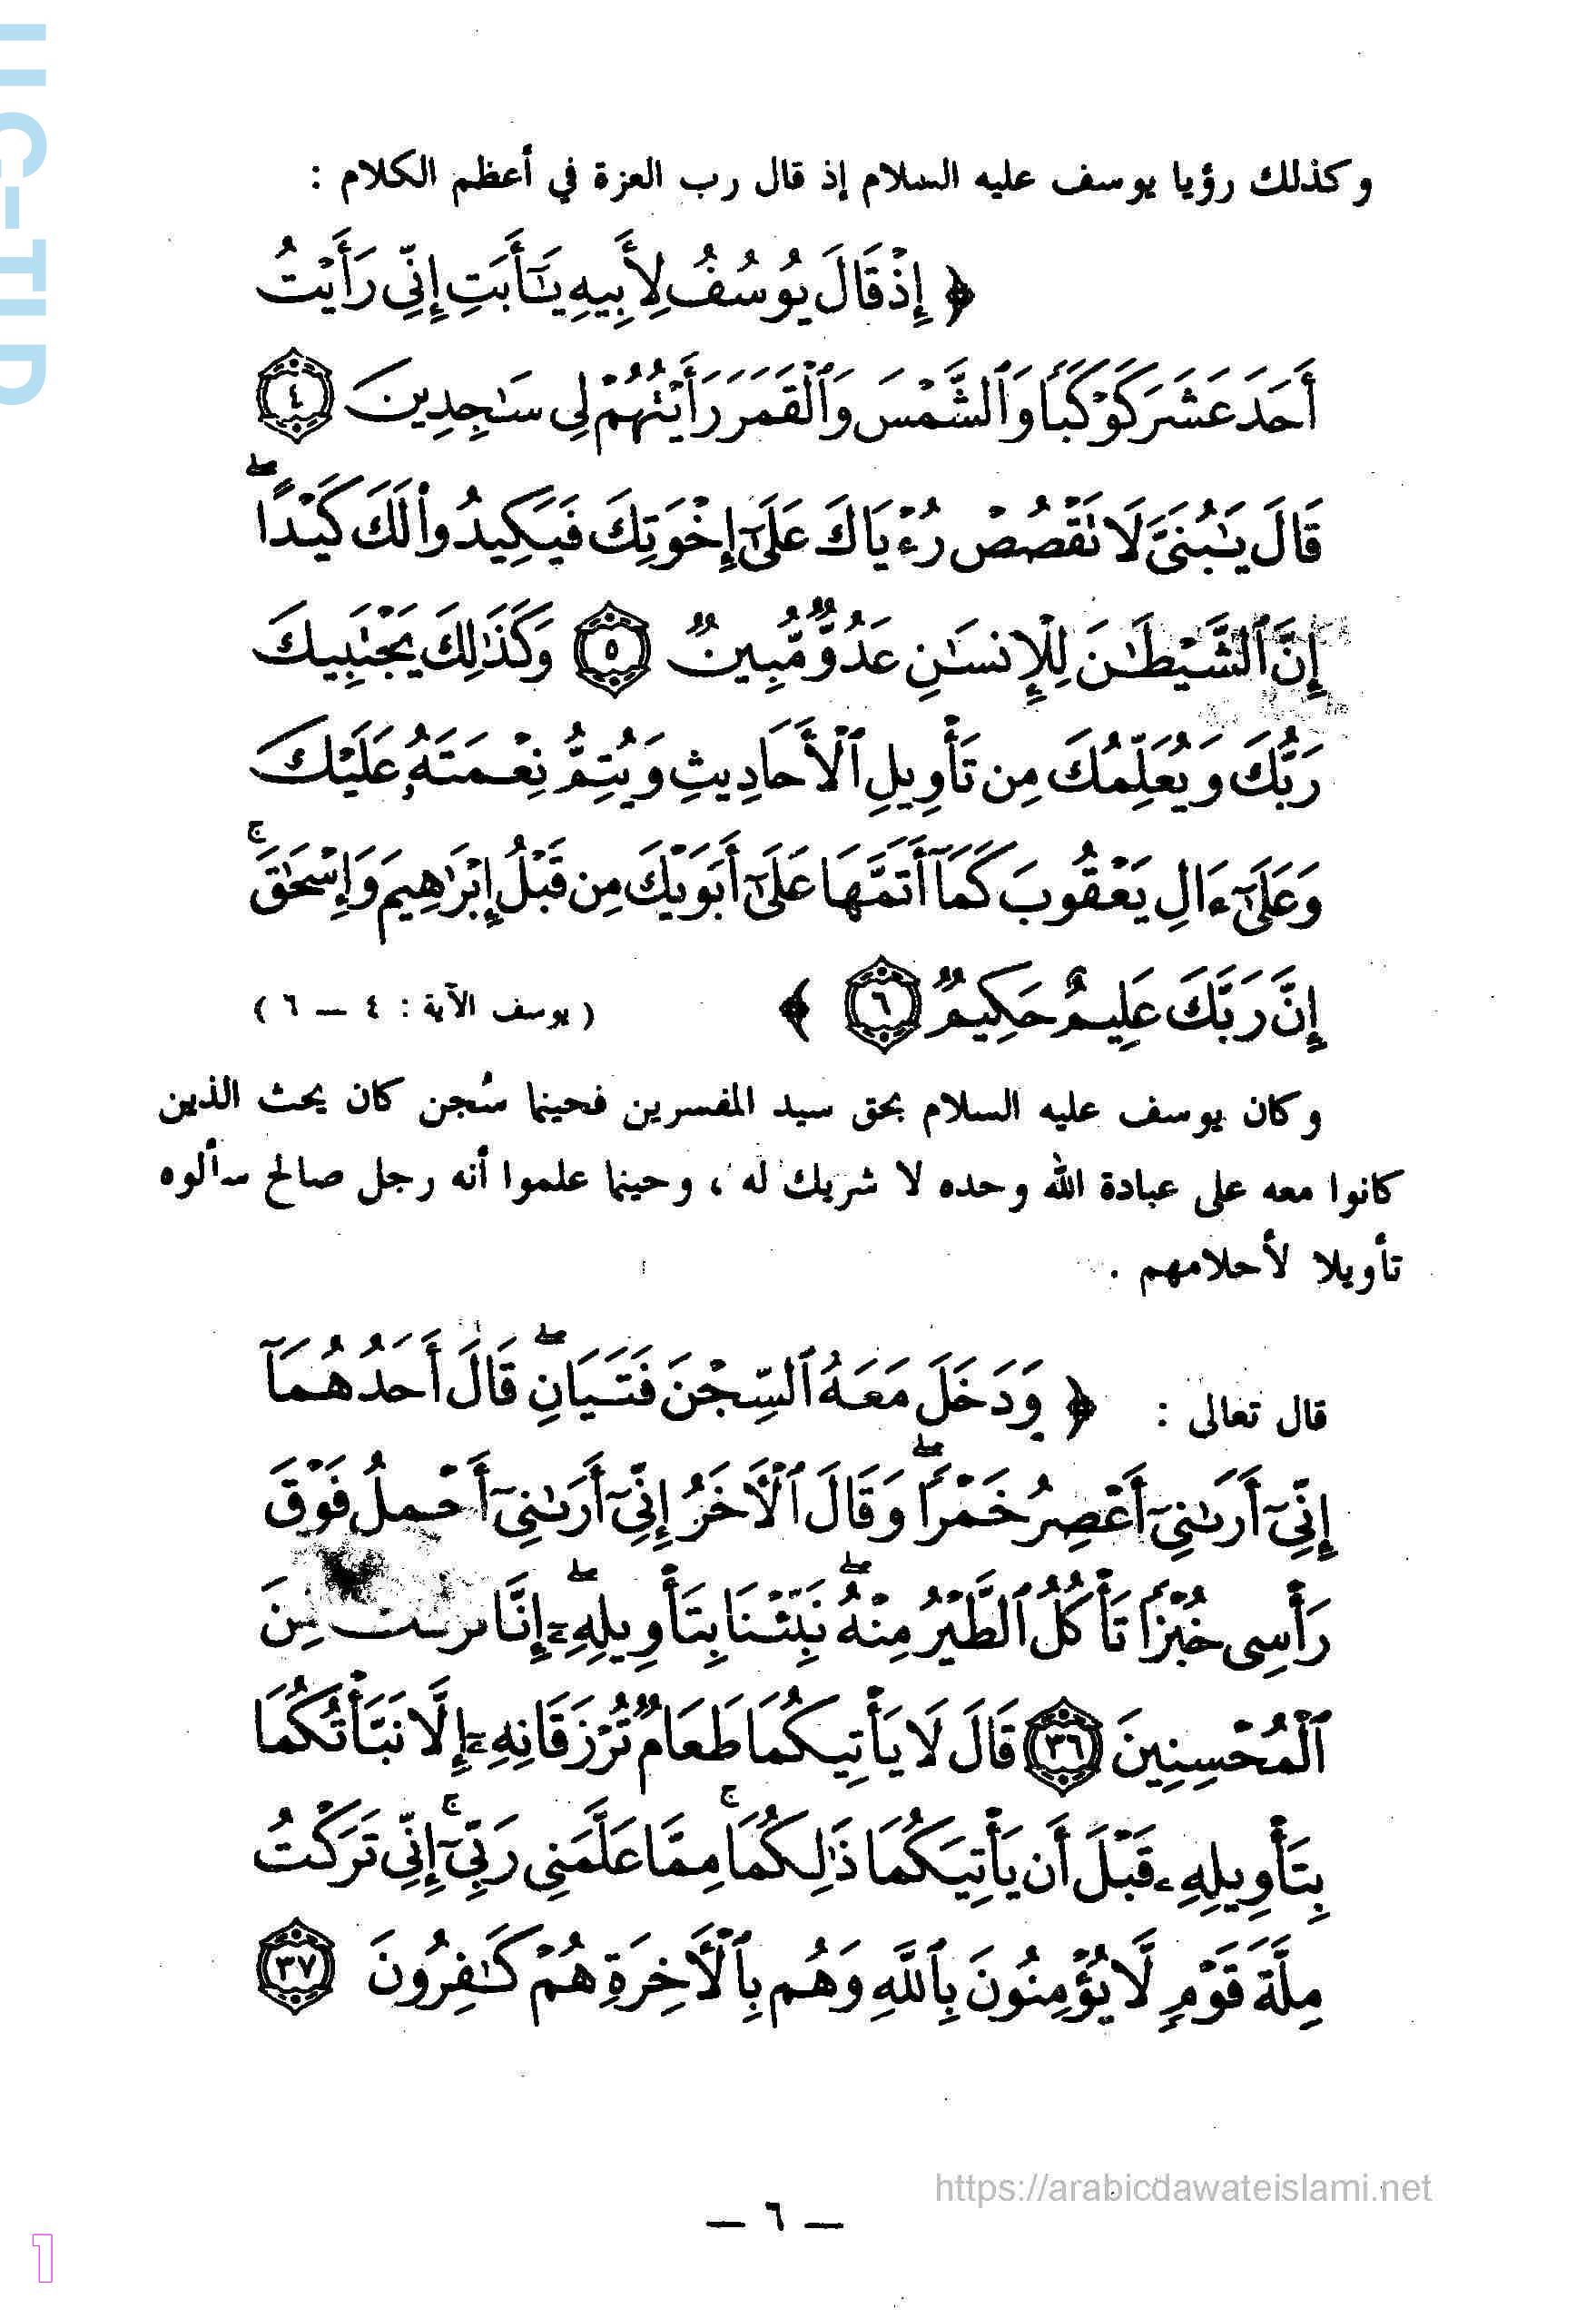 وكذلك رؤيا يوسف عليه السلام إذ قال رب العزة في أعظم الكلام :
﴿ إِذْ قَالَ يُوسُفُ لِأَبِيهِ يَٰٓأَبَتِ إِنِّى رَأَيْتُ
أَحَدَ عَشَرَ كَوْكَبًا وَٱلشَّمْسَ وَٱلْقَمَرَ رَأَيْتُهُمْ لِى سَٰجِدِينَ ٤
قَالَ يَٰبُنَىَّ لَا تَقْصُصْ رُءْيَاكَ عَلَىٰٓ إِخْوَتِكَ فَيَكِيدُوا۟ لَكَ كَيْدًا ۖ
إِنَّ ٱلشَّيْطَٰنَ لِلْإِنسَٰنِ عَدُوٌّ مُّبِينٌ ٥ وَكَذَٰلِكَ يَجْتَبِيكَ
رَبُّكَ وَيُعَلِّمُكَ مِن تَأْوِيلِ ٱلْأَحَادِيثِ وَيُتِمُّ نِعْمَتَهُۥ عَلَيْكَ
وَعَلَىٰٓ ءَالِ يَعْقُوبَ كَمَآ أَتَمَّهَا عَلَىٰٓ أَبَوَيْكَ مِن قَبْلُ إِبْرَٰهِيمَ وَإِسْحَٰقَ ۚ
إِنَّ رَبَّكَ عَلِيمٌ حَكِيمٌ ٦ ﴾ ( يوسف الآية : ٤ — ٦ )
وكان يوسف عليه السلام بحق سيد المفسرين فحينما سُجن كان يحث الذين
كانوا معه على عبادة الله وحده لا شريك له ، وحينما علموا أنه رجل صالح سألوه
تأويلا لأحلامهم .
قال تعالى : ﴿ وَدَخَلَ مَعَهُ ٱلسِّجْنَ فَتَيَانِ ۖ قَالَ أَحَدُهُمَآ
إِنِّىٓ أَرَىٰنِىٓ أَعْصِرُ خَمْرًا ۖ وَقَالَ ٱلْأَخَرُ إِنِّىٓ أَرَىٰنِىٓ أَحْمِلُ فَوْقَ
رَأْسِى خُبْزًا تَأْكُلُ ٱلطَّيْرُ مِنْهُ ۖ نَبِّئْنَا بِتَأْوِيلِهِۦٓ ۖ إِنَّا نَرَىٰكَ مِنَ
ٱلْمُحْسِنِينَ ٣٦ قَالَ لَا يَأْتِيكُمَا طَعَامٌ تُرْزَقَانِهِۦٓ إِلَّا نَبَّأْتُكُمَا
بِتَأْوِيلِهِۦ قَبْلَ أَن يَأْتِيَكُمَا ذَٰلِكُمَا مِمَّا عَلَّمَنِى رَبِّىٓ ۚ إِنِّى تَرَكْتُ
مِلَّةَ قَوْمٍ لَّا يُؤْمِنُونَ بِٱللَّهِ وَهُم بِٱلْأَخِرَةِ هُمْ كَٰفِرُونَ ٣٧
https://arabicdawateislami.net
— ٦ —
1